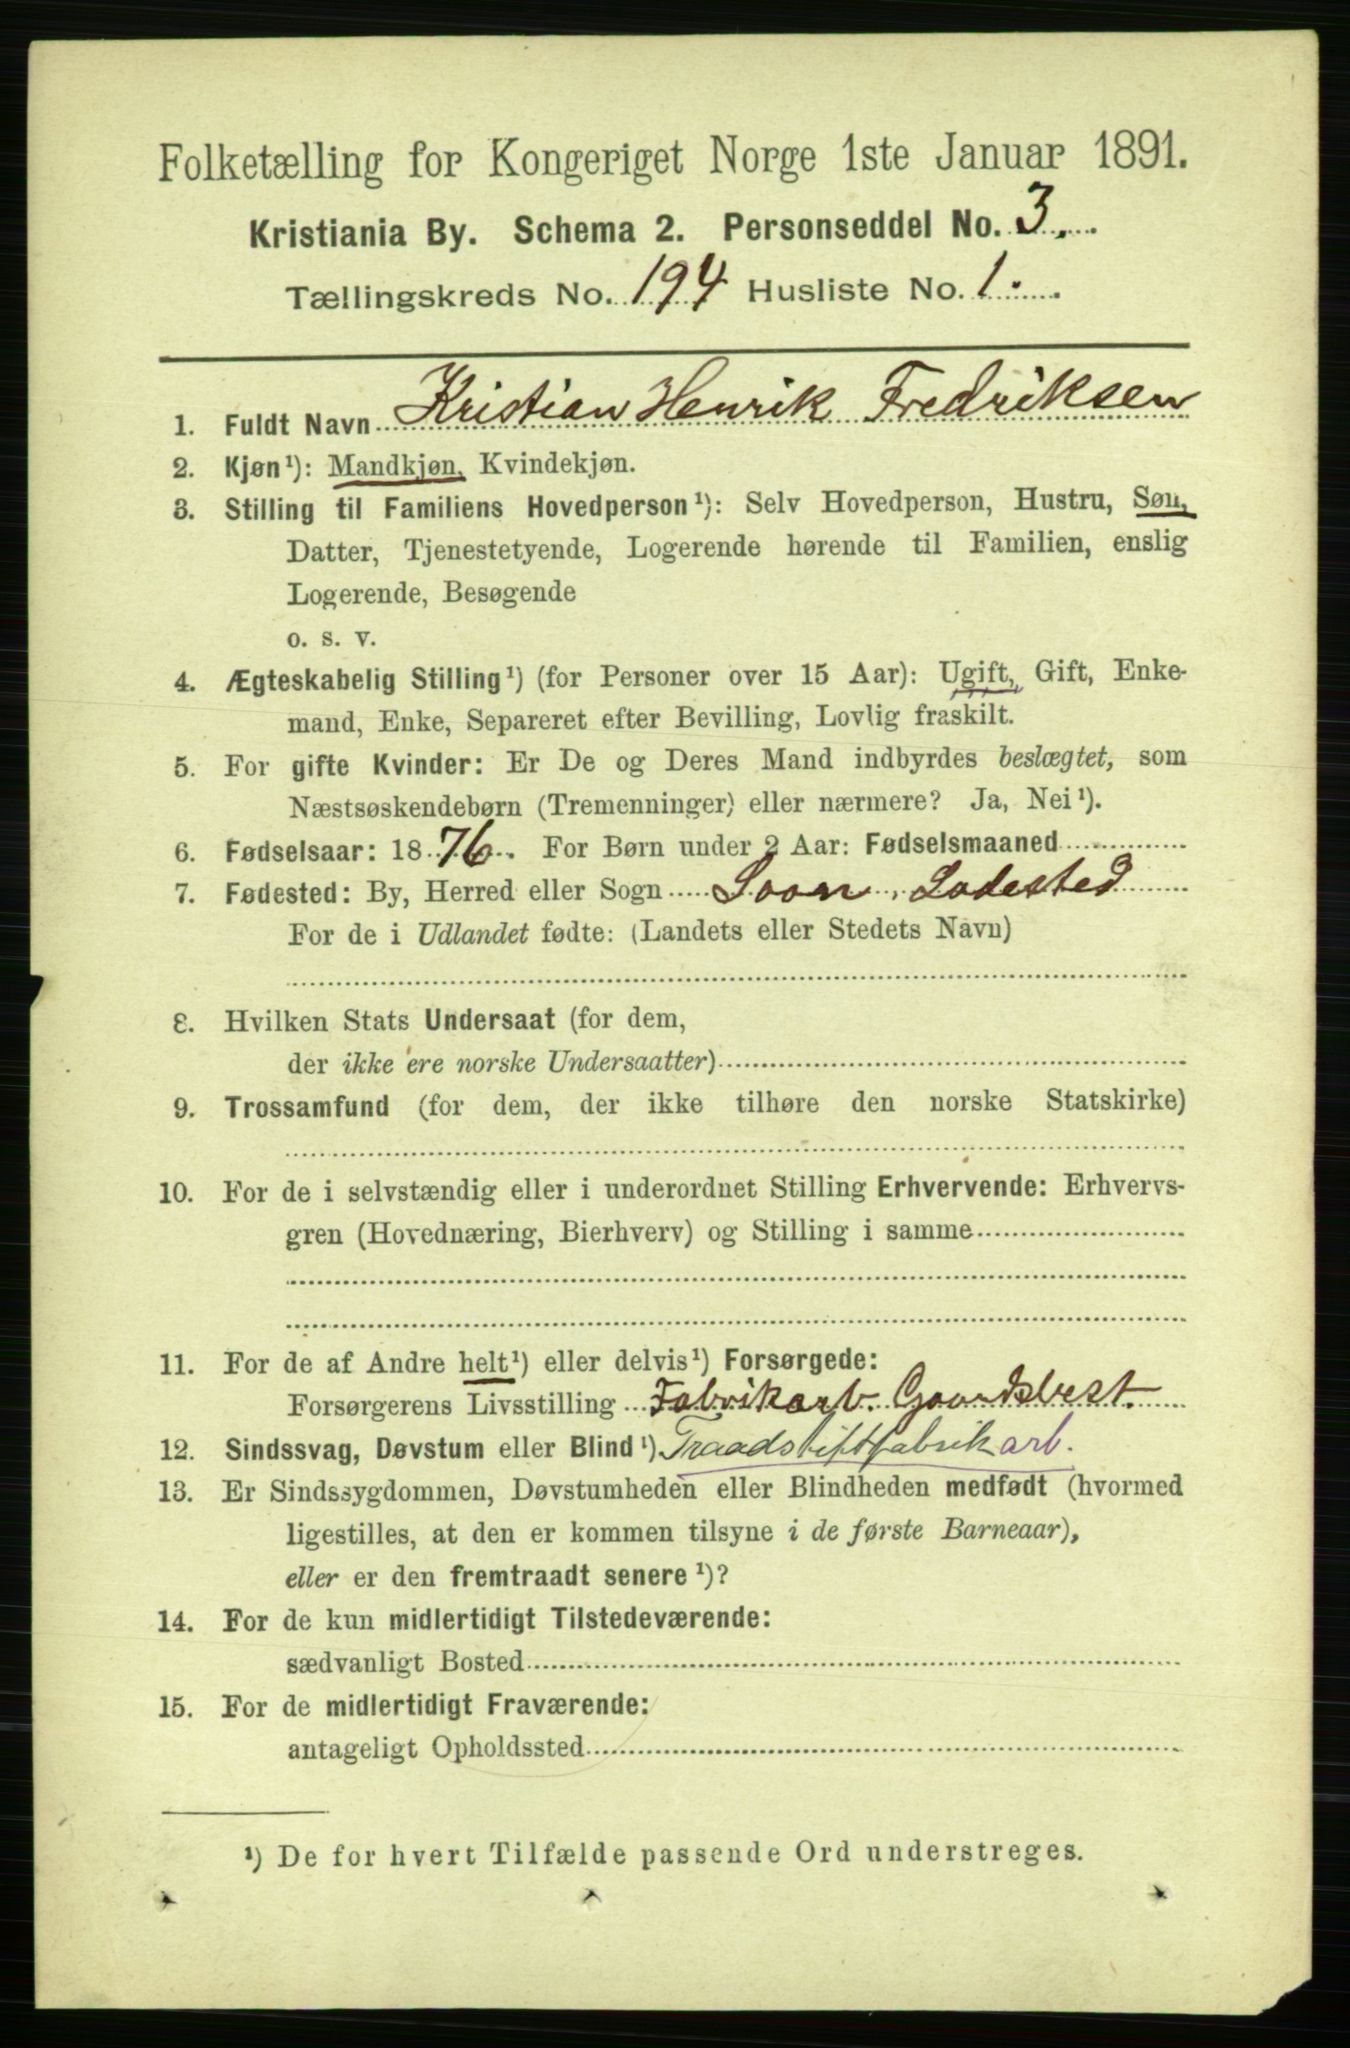 Folketælling for Kongeriget Norge 1ste Januar 1891.
Kristiania By. Schema 2. Personseddel No. 3.
Tællingskreds No. 194 Husliste No. 1.
1. Fuldt Navn Kristian Henrik Fredriksen
2. Kjøn¹): Mandkjøn, Kvindekjøn.
3. Stilling til Familiens Hovedperson¹): Selv Hovedperson, Hustru, Søn,
Datter, Tjenestetyende, Logerende hørende til Familien, enslig
Logerende, Besøgende
o. s. v.
4. Ægteskabelig Stilling¹) (for Personer over 15 Aar): Ugift, Gift, Enke-
mand, Enke, Separeret efter Bevilling, Lovlig fraskilt.
5. For gifte Kvinder: Er De og Deres Mand indbyrdes beslægtet, som
Næstsøskendebørn (Tremenninger) eller nærmere? Ja, Nei¹).
6. Fødselsaar: 1876. For Børn under 2 Aar: Fødselsmaaned
7. Fødested: By, Herred eller Sogn Soon, Ladested
For de i Udlandet fødte: (Landets eller Stedets Navn)
8. Hvilken Stats Undersaat (for dem,
der ikke ere norske Undersaatter)
9. Trossamfund (for dem, der ikke tilhøre den norske Statskirke)
10. For de i selvstændig eller i underordnet Stilling Erhvervende: Erhvervs-
gren (Hovednæring, Bierhverv) og Stilling i samme
11. For de af Andre helt¹) eller delvis¹) Forsørgede:
Forsørgerens Livsstilling Fabrikarb. Gaardsbest.
12. Sindssvag, Døvstum eller Blind¹) Traadstiftfabrikarb.
13. Er Sindssygdommen, Døvstumheden eller Blindheden medfødt (hvormed
ligestilles, at den er kommen tilsyne i de første Barneaar),
eller er den fremtraadt senere¹)?
14. For de kun midlertidigt Tilstedeværende:
sædvanligt Bosted
15. For de midlertidigt Fraværende:
antageligt Opholdssted
¹) De for hvert Tilfælde passende Ord understreges.